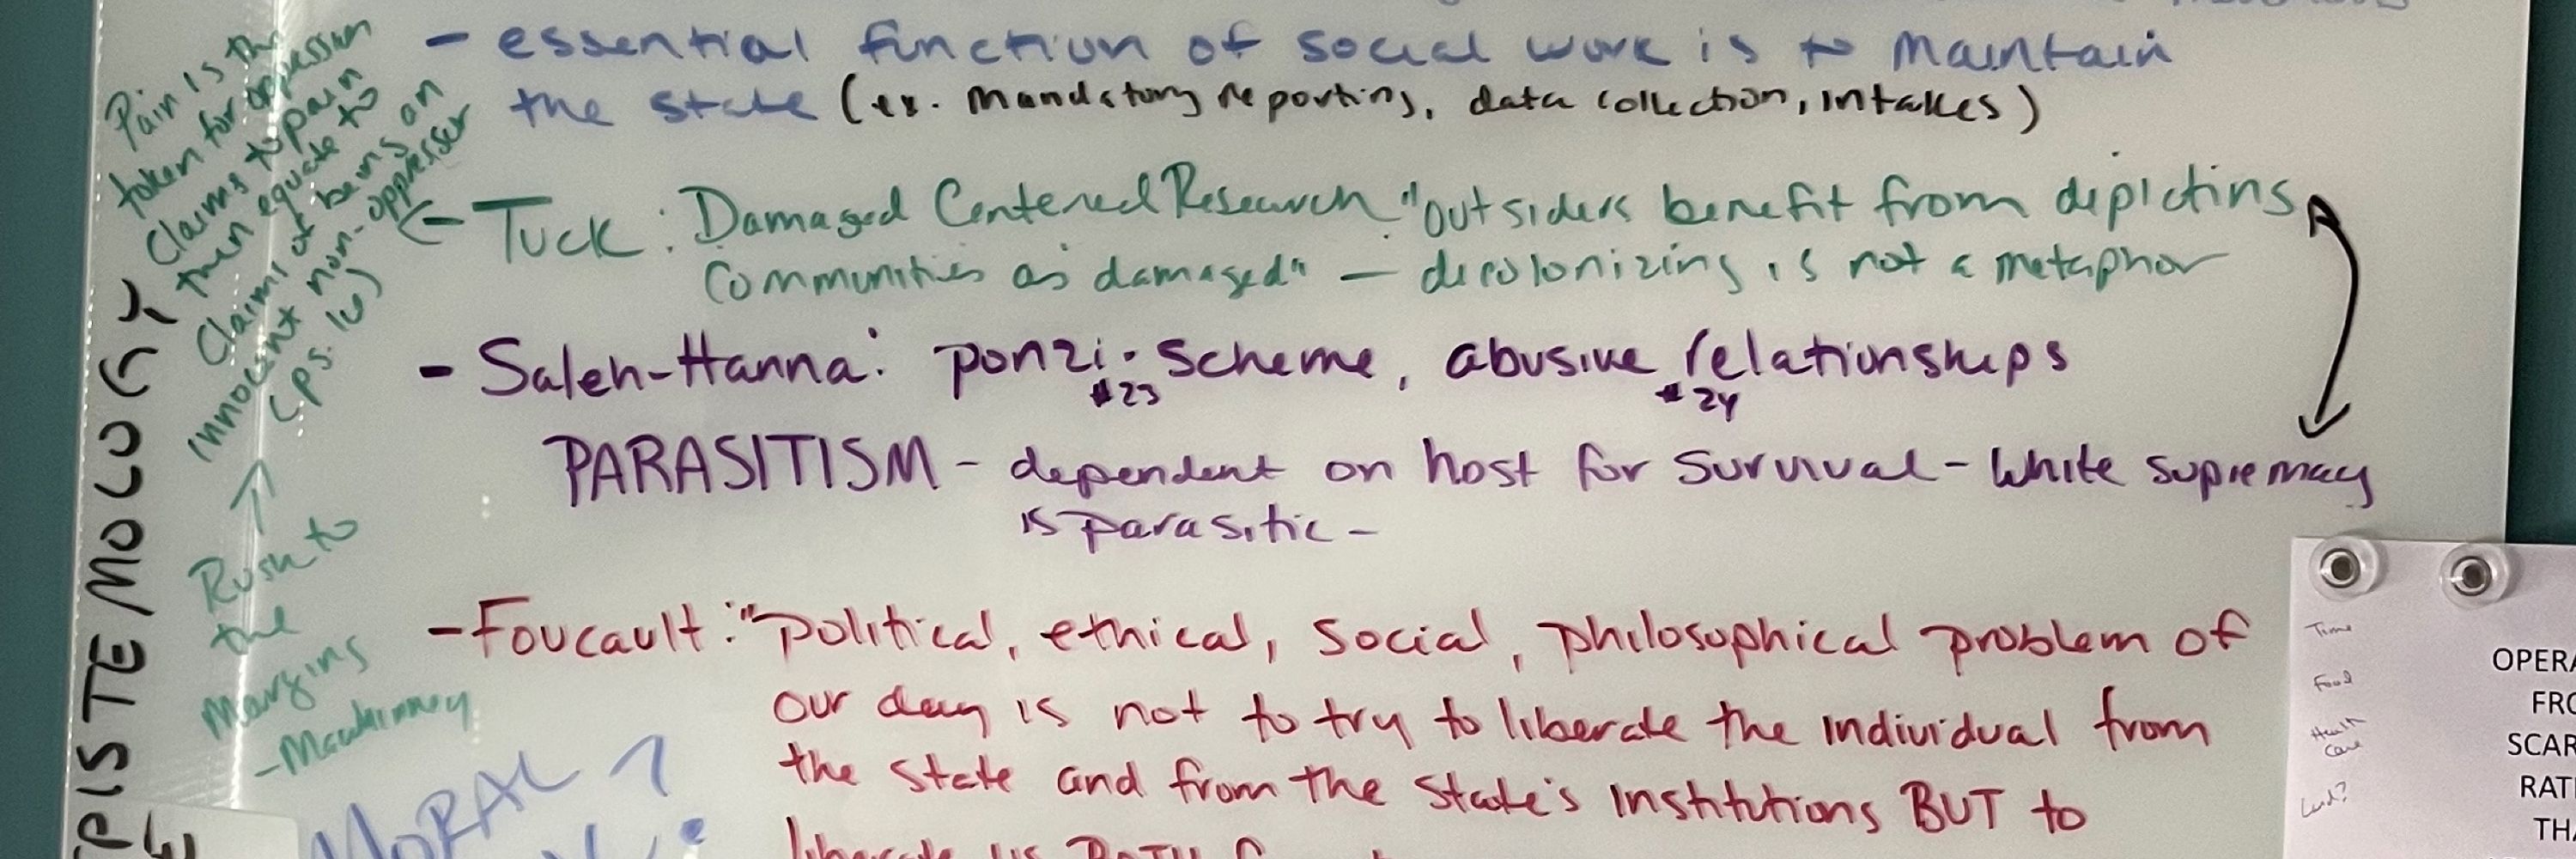 - essential function of social work is to maintain
the state (ex. Mandatory reporting, data collection, intakes)
Pain is the
token for oppression
Claims to pain
then equate to
Claims of being an
innocent non-oppressor
(ps. 16)
← Tuck: Damaged Centered Research "outsiders benefit from depicting
Communities as damaged" — decolonizing is not a metaphor
- Saleh-Hanna: ponzi-scheme, abusive relationships
#23 #24
PARASITISM - dependent on host for survival - White supremacy
is parasitic -
Rush to
the
Margins
- Foucault: "political, ethical, social, philosophical problem of
our day is not to try to liberate the individual from
the state and from the state's institutions BUT to
liberate us BOTH
MORAL
PISTEMOLOGY
Time
Food
Health
Care
OPERA
FRO
SCAR
RATI
THA